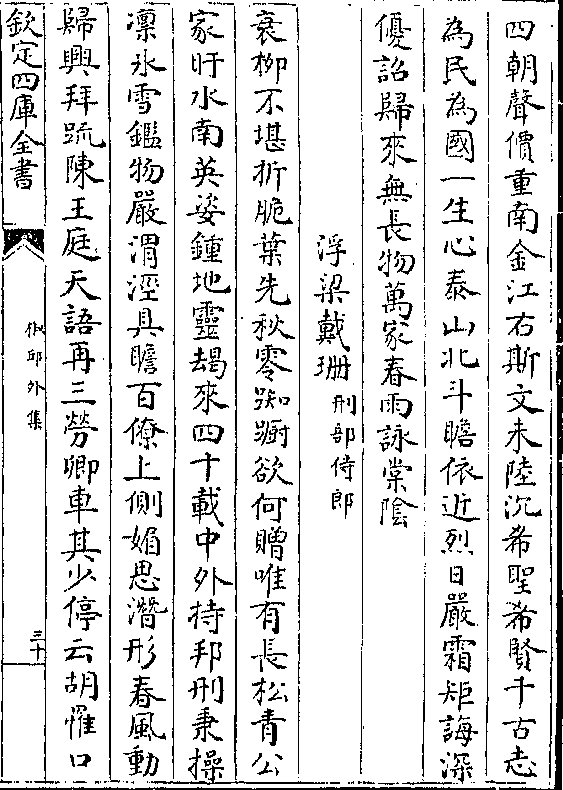 四朝聲價重南金江右斯文未陸沉希聖希賢千古志
為民為國一生心泰山北斗瞻依近烈日嚴霜矩誨深
優詔歸來無長物萬家春雨詠棠陰
浮梁戴珊刑部侍郎
衰柳不堪折脆葉先秋零踟蹰欲何贈唯有長松青公
家旴水南英姿鍾地靈朅來四十載中外持邦刑秉操
凛氷雪鑑物嚴渭涇具瞻百僚上側媚思潛形春風動
歸興拜疏陳王庭天語再三勞卿車其少停云胡罹口
欽定四庫全書
椒邱外集
三十